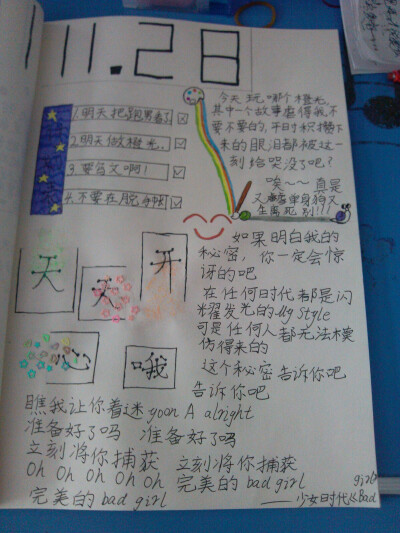 11.28
1.明天把跑男看了
2.明天做橙光..
3.要鸟文啊!
4.不要在脱手帐
今天玩哪个橙光,
其中一个故事虐得我不
要不要的,平时积攒下
来的眼泪都被这一
刻给哭没了吧?
唉~~真是
又虐单身狗又
生离死别!!!
天天开
心哦
如果明白我的
秘密,你一定会惊
讶的吧
在任何时代都是闪
耀发光的 My style
可是任何人都无法模
仿得来的
这个秘密告诉你吧
告诉你吧
瞧我让你着迷 yoon A alright
准备好了吗 准备好了吗
立刻将你捕获 立刻将你捕获
Oh Oh Oh Oh Oh 完美的 bad girl
完美的 bad girl
——少女时代《Bad girl》